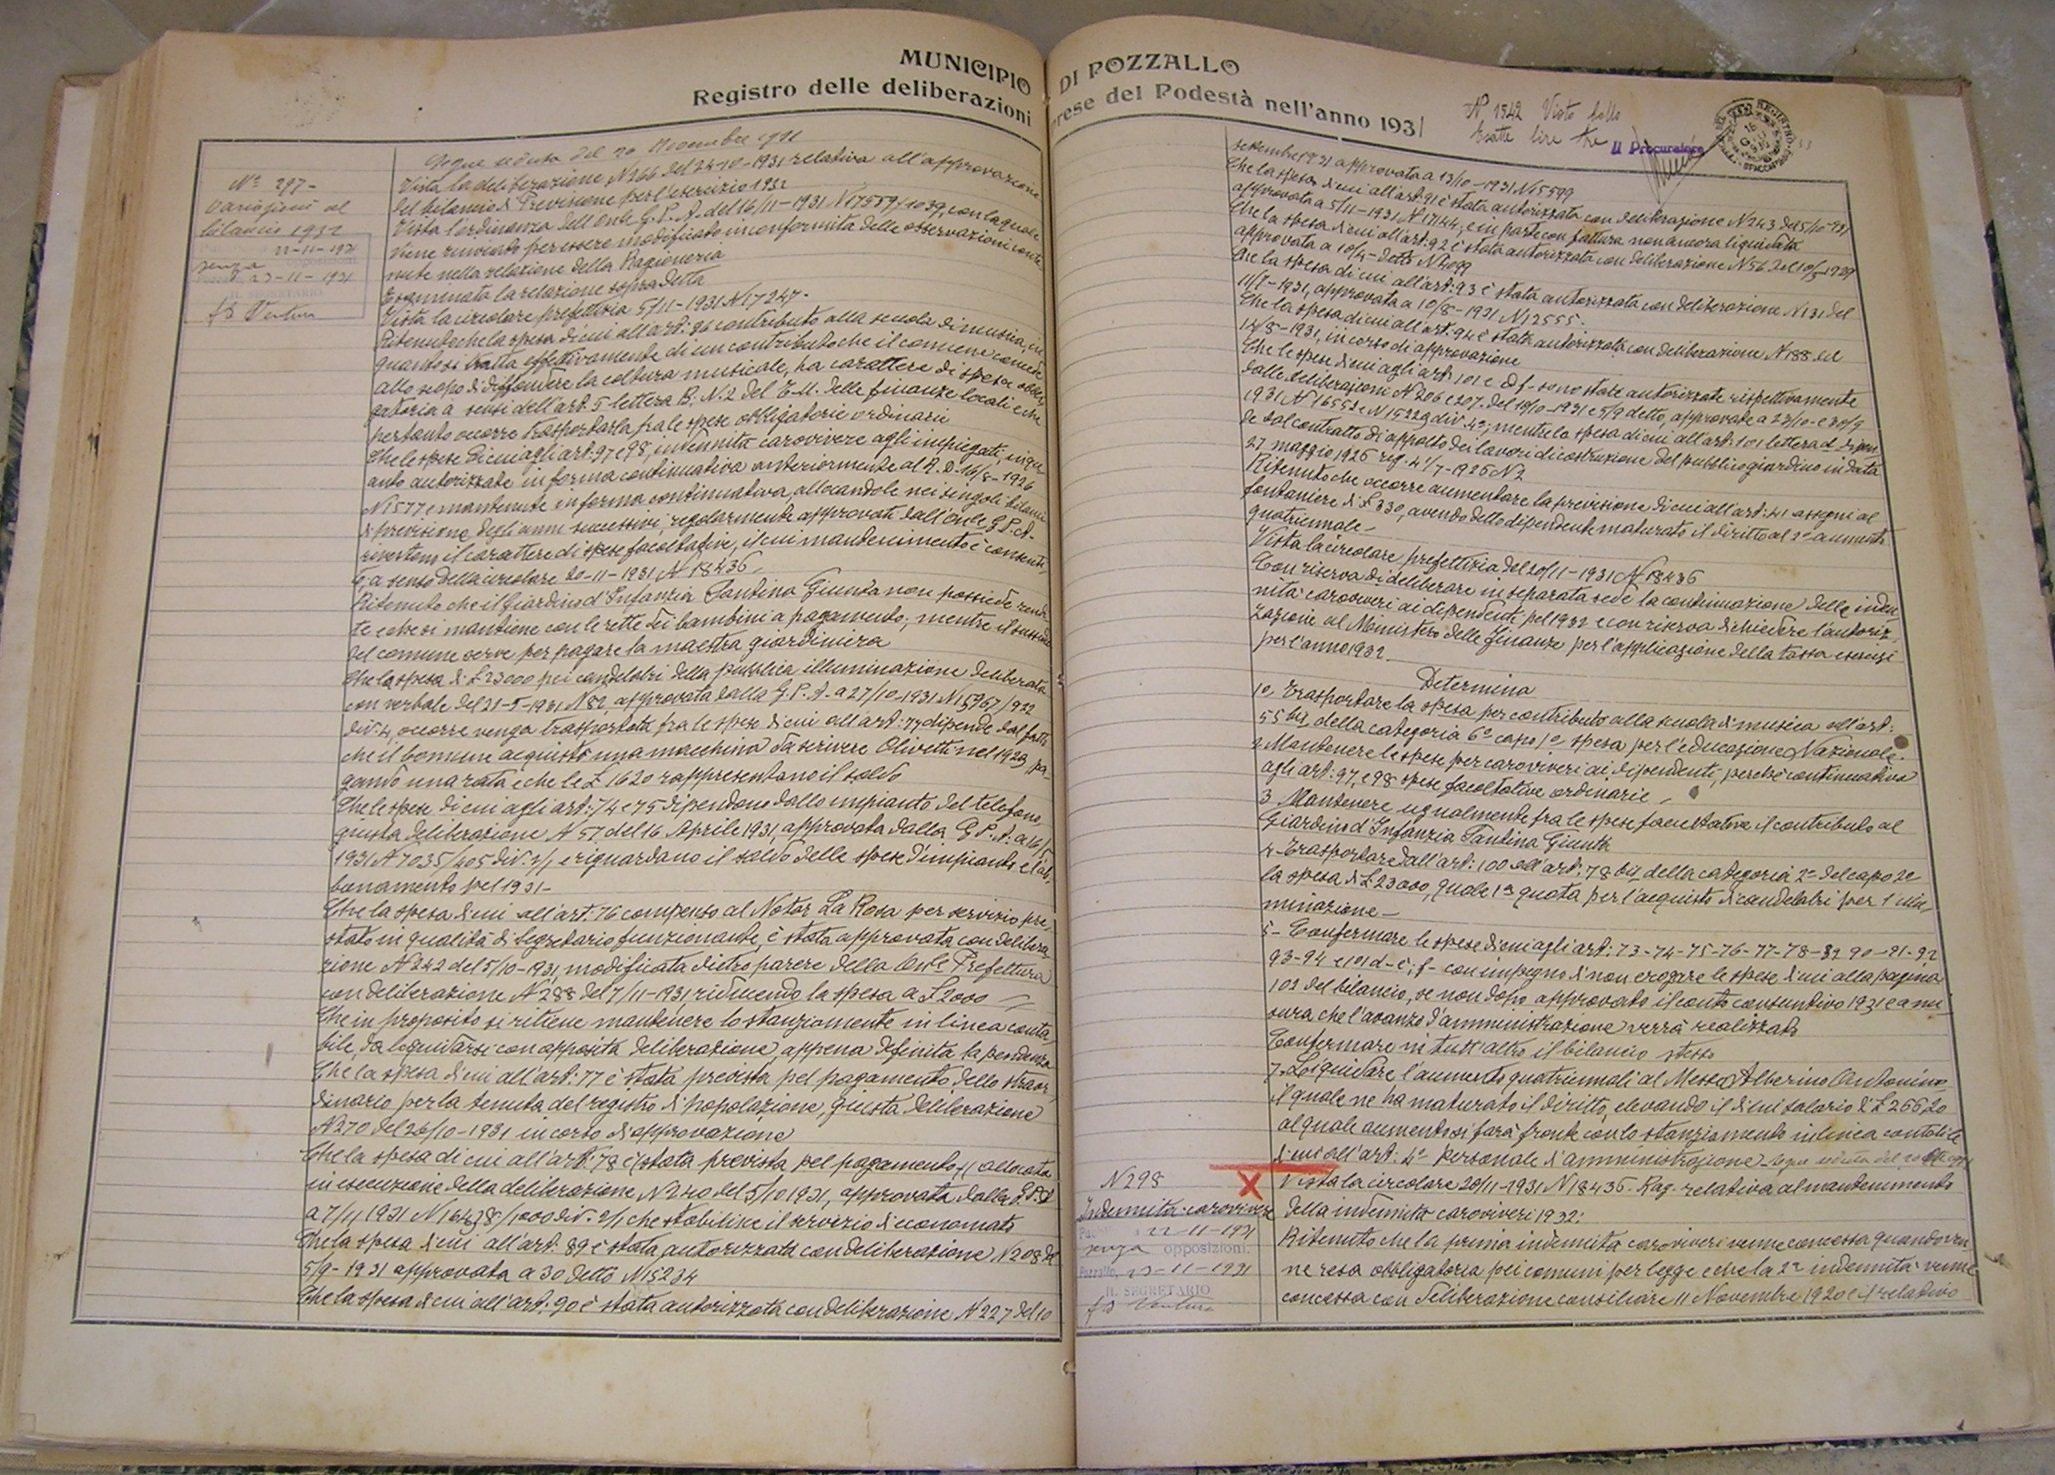 MUNICIPIO DI POZZALLO
Registro delle deliberazioni prese del Podestà nell'anno 1931
Segue seduta del 20 Novembre 1931
Nº 297 -
Variazioni al
bilancio 1932
22-11-1931
senza
23-11-1931
IL SEGRETARIO
fto Ventura
Vista la deliberazione N 266 del 24-10-1931 relativa all'approvazione
del bilancio di Previsione per l'esercizio 1932
Vista l'ordinanza dell'On.le G.P.A. del 16/11-1931 N 17559/1039, con la quale
viene rinviato per essere modificato in conformità delle osservazioni conte
nute nella relazione della Ragioneria
Esaminata la relazione sopradetta
Vista la circolare prefettizia 5/11-1931 N 17247.
Ritenuto che la spesa di cui all'art: 96 contributo alla scuola di musica, in
quanto si tratta effettivamente di un contributo che il comune concede
allo scopo di diffondere la coltura musicale, ha carattere di spesa obbli
gatoria a sensi dell'art. 5 lettera B. N. 2 del T.U. delle finanze locali e che
pertanto occorre trasportarla fra le spese obbligatorie ordinarie
Che le spese di cui agli art: 97 e 98, indennità caroviveri agli impiegati, in qu
anto autorizzate in forma continuativa anteriormente al R.D. 16/8-1926
N 1577 e mantenute in forma continuativa, allocandole nei singoli bilanci
di previsione degli anni successivi, regolarmente approvati dall'On.le G.P.A.
rivestono il carattere di spese facoltative, il cui mantenimento è consenti
to, a senso della circolare 20-11-1931 N 18436.
Ritenuto che il Giardino d'Infanzia Santina Giunta non possiede rendi
te e che si mantiene con le rette dei bambini a pagamento; mentre il sussidio
del comune serve per pagare la maestra giardiniera
Che la spesa di £ 23000 pei candelabri della pubblica illuminazione deliberata
con verbale del 28-5-1931 N 82, approvata dalla G.P.A. a 27/10-1931 N 15967/922
div: 4, occorre venga trasportata fra le spese di cui all'art: 77 dipende dal fatto
che il comune acquistò una macchina da scrivere Olivetti nel 1929, pa-
gando una rata e che le £ 1620 rappresentano il saldo
Che le spese di cui agli art: 74 e 75 dipendono dallo impianto del telefono,
giusta deliberazione N 57 del 16 Aprile 1931, approvata dalla G.P.A. a 16/5
1931 N 7035/405 div: 2/1 e riguardano il saldo delle spese d'impianto e l'ab-
bonamento pel 1931-
Che la spesa di cui all'art: 76 compenso al Notar La Rosa per servizio pre
stato in qualità di Segretario funzionante, è stata approvata con delibera
zione N 242 del 5/10-1931, modificata dietro parere della On.le Prefettura
con deliberazione N 288 del 7/11-1931 riducendo la spesa a £ 2000
Che in proposito si ritiene mantenere lo stanziamento in linea conta
bile, da liquidarsi con apposita deliberazione, appena definita la pendenza
Che la spesa di cui all'art: 77 è stata prevista pel pagamento dello straor
dinario per la tenuta del registro di popolazione, giusta deliberazione
N 270 del 26/10-1931 in corso di approvazione
Che la spesa di cui all'art: 78 è stata prevista pel pagamento allocata
in esecuzione della deliberazione N 240 del 5/10 1931, approvata dalla G.P.A.
a 7/11 1931 N 16438/1000 div: 2/1 che stabilisce il servizio di economato
Che la spesa di cui all'art: 89 è stata autorizzata con deliberazione N 208 del
5/9-1931 approvata a 30 detto N 15234
Che la spesa di cui all'art: 90 è stata autorizzata con deliberazione N 227 del 10
Nº 1542 Visto bollo
Esatte lire tre
Il Procuratore
settembre 1931 approvata a 13/10-1931 N 15599
Che la spesa di cui all'art: 91 è stata autorizzata con deliberazione N 243 del 5/10-931
approvata a 5/11-1931 N 17144, e in parte con fattura non ancora liquidata
Che la spesa di cui all'art: 92 è stata autorizzata con deliberazione N 56 del 10/3-1929
approvata a 10/4 detto N 4099
Che la spesa di cui all'art: 93 è stata autorizzata con deliberazione N 131 del
11/7-1931, approvata a 10/8-1931 N 12555.
Che la spesa di cui all'art: 94 è stata autorizzata con deliberazione N 188 del
14/8-1931, in corso di approvazione
Che le spese di cui agli art: 101 e ed f- sono state autorizzate rispettivamente
dalle deliberazioni N 206 e 207 del 10/10-1931 e 5/9 detto, approvate a 23/10- e 30/9
1931 N 16552 e N 15229 div: 4ª; mentre la spesa di cui all'art: 101 lettera d dipen
de dal contratto di appalto dei lavori di costruzione del pubblico giardino in data
27 maggio 1926 reg. 4 1/7-1926 N 2
Ritenuto che occorre aumentare la previsione di cui all'art: 41 assegni al
fontaniere di £ 330, avendo detto dipendente maturato il diritto al 2º aumento
quatriennale-
Vista la circolare prefettizia del 20/11-1931 N 18436
Con riserva di deliberare in separata sede la continuazione delle inden
nità caroviveri ai dipendenti pel 1932 e con riserva di chiedere l'autoriz-
zazione al Ministero delle Finanze per l'applicazione della tassa esercizi
per l'anno 1932
Determina
1º, Trasportare la spesa per contributo alla scuola di musica all'art:
55 bis della categoria 6ª capo 1º, spesa per l'educazione Nazionale.
2 Mantenere le spese per caroviveri ai dipendenti, perché continuativa
agli art: 97, e 98 spese facoltative ordinarie -
3 Mantenere ugualmente fra le spese facoltative il contributo al
Giardino d'Infanzia Santina Giunta
4- Trasportare dall'art: 100 all'art: 78 bis della categoria 2ª del capo 2º
la spesa di £ 23000, quale 1ª quota per l'acquisto di candelabri per l'illu-
minazione-
5- Confermare le spese di cui agli art: 73-74-75-76-77-78-89 90-91-92
93-94 e 101 d-e; f- con impegno di non erogare le spese di cui alla pagina
102 del bilancio, se non dopo approvato il conto consuntivo 1931 e a mi
sura che l'avanzo d'amministrazione verrà realizzato
Confermare in tutt'altro il bilancio stesso
7- Liquidare l'aumento quatriennali al Messo Alberino Antonino
il quale ne ha maturato il diritto, elevando il di cui salario di £ 266,20
al quale aumento si farà fronte con lo stanziamento in linea contabile
di cui all'art: 4º Personale d'amministrazione - Segue seduta del 20
N 298
Indennità caroviveri
22-11-1931
senza opposizioni.
Pozzallo, 23-11-1931
IL SEGRETARIO
fto Ventura
Vista la circolare 20/11-1931 N 18436. Rag. relativa al mantenimento
della indennità caroviveri 1932:
Ritenuto che la prima indennità caroviveri venne concessa quando ven
ne resa obbligatoria pei comuni per legge e che la 2ª indennità venne
concessa con deliberazione consiliare 11 Novembre 1920 e il relativo